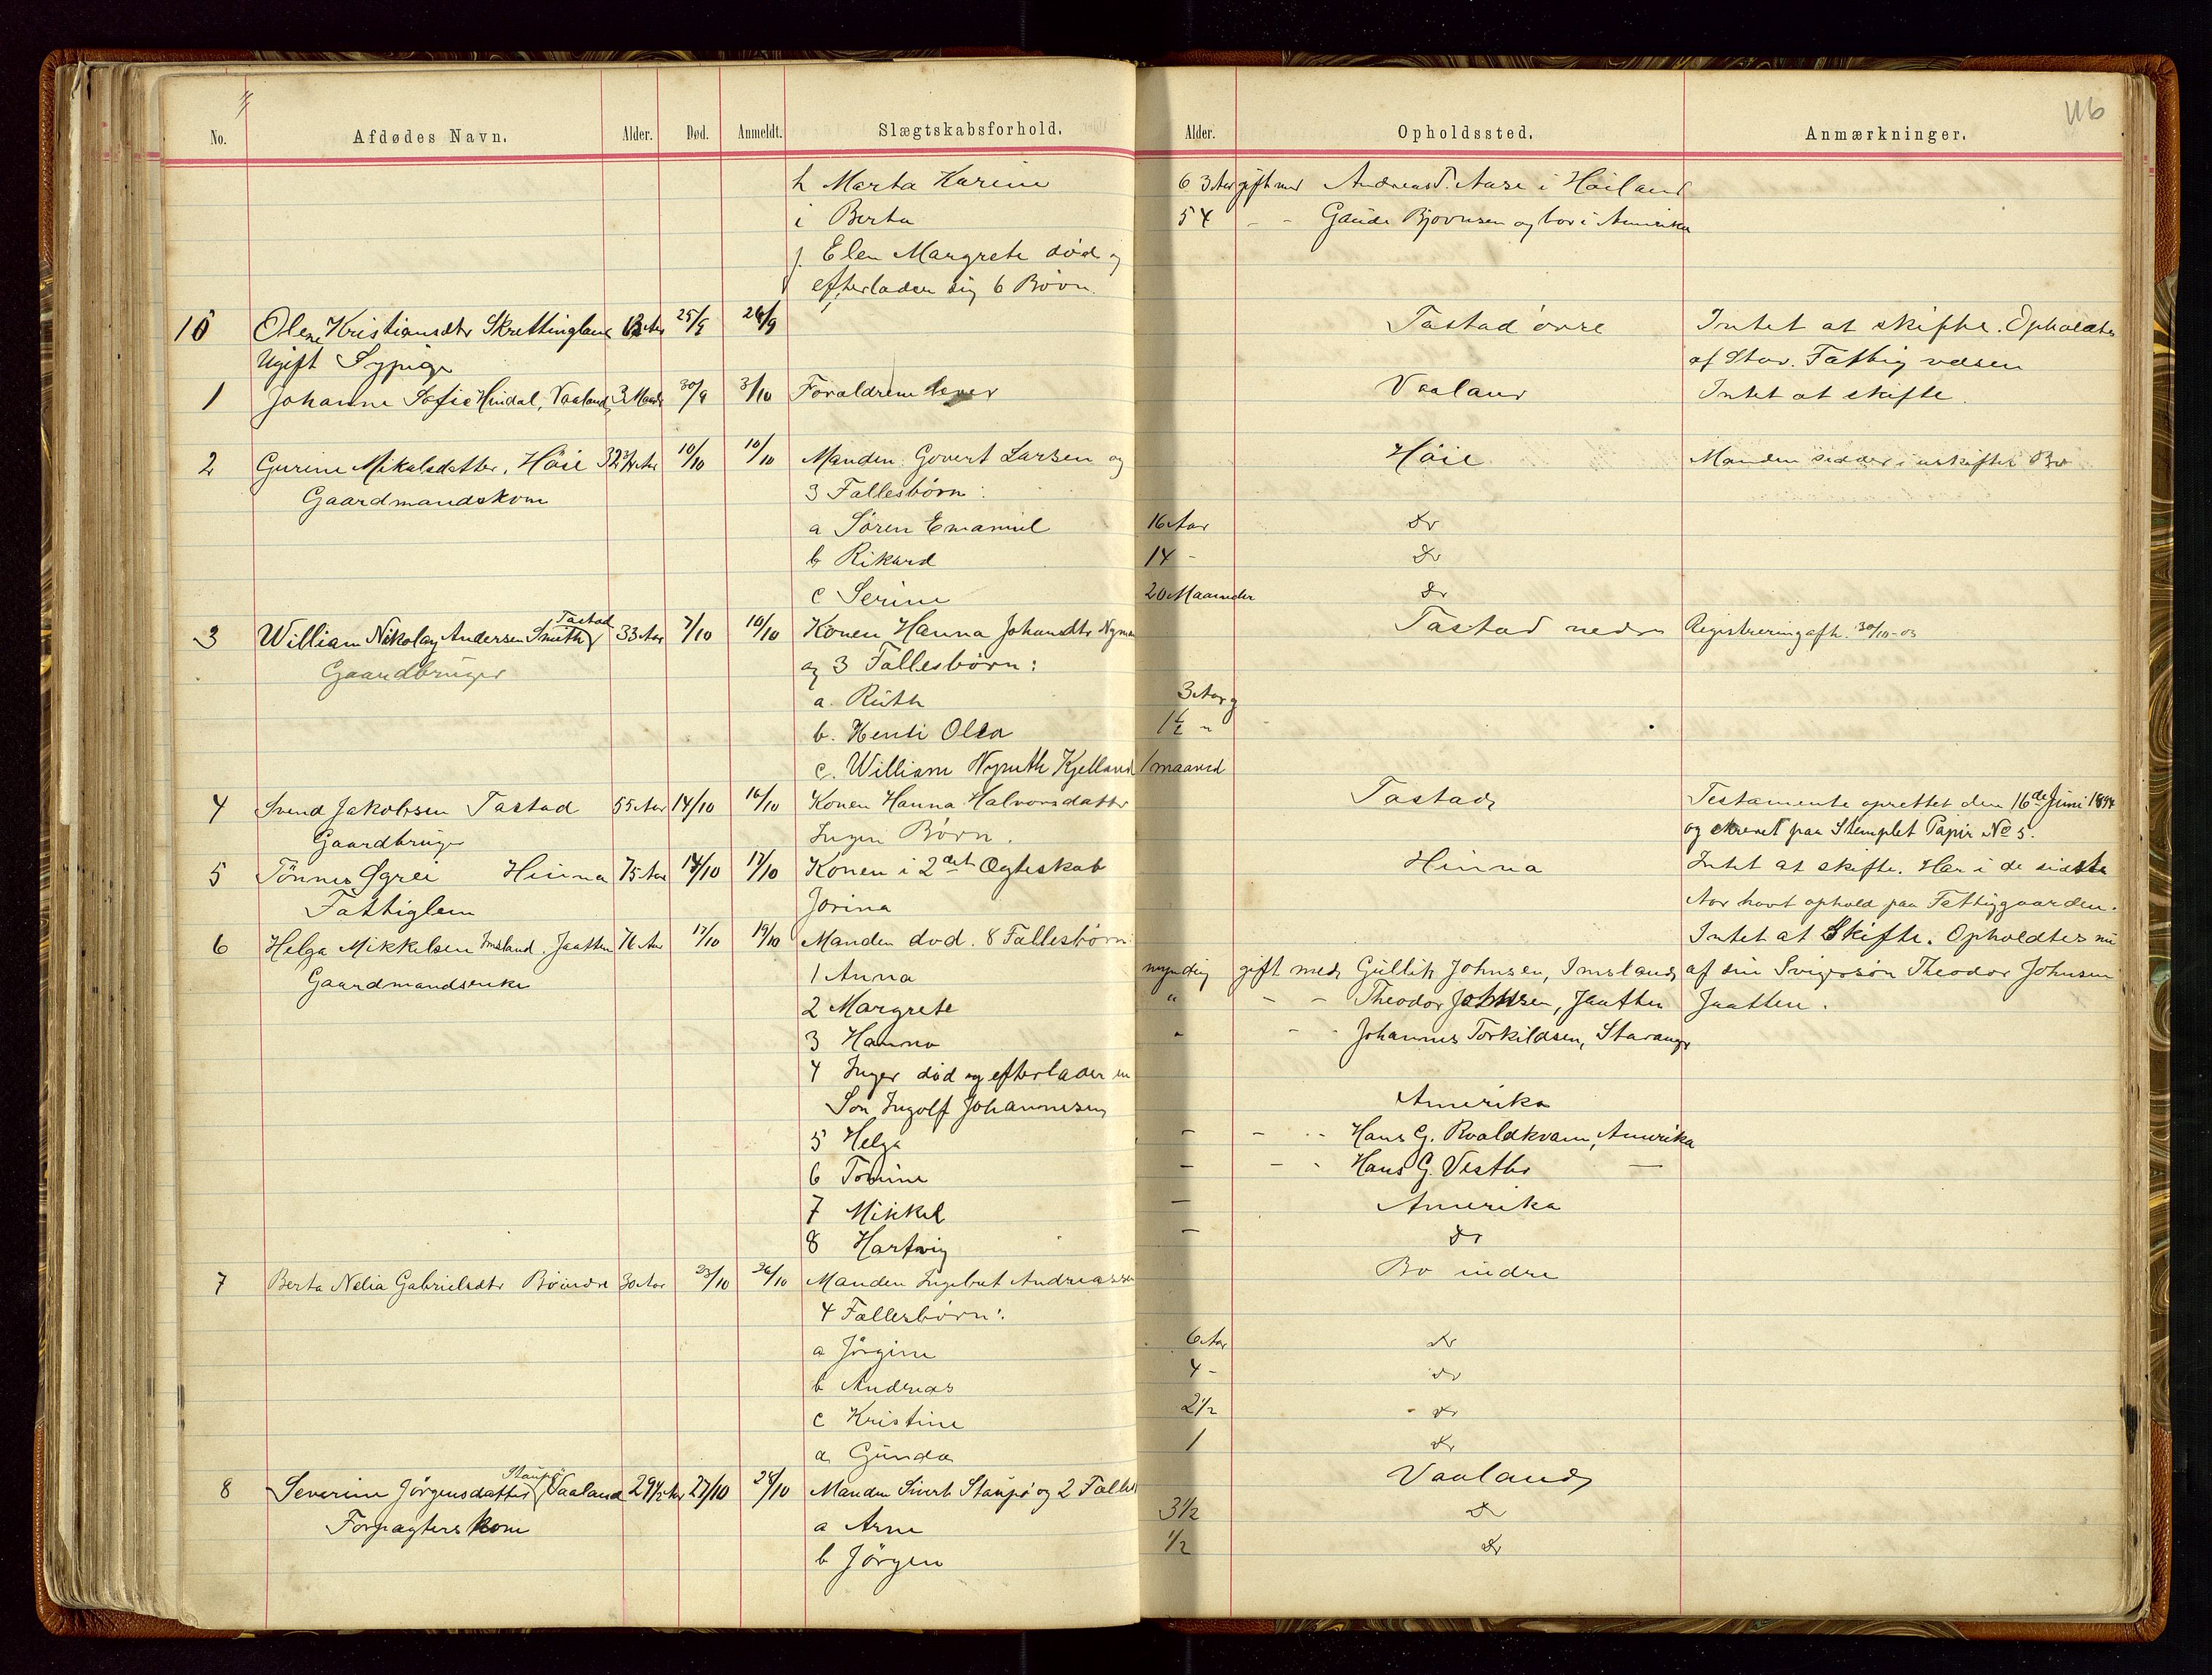 116
No. Afdødes Navn. Alder. Død. Anmeldt. Slægtskabsforhold. Alder. Opholdssted. Anmærkninger.
h Marta Karine 63 Aar gift med Andreas T. Aase i Høiland
i Berta 54 - - Gaude Bjørnsen og bor i Amerika
j. Elen Margrete død og
efterlader sig 6 Børn.
10 Olene Kristiansdtr Skrettingland Aar 25/9 26/9 Tastad øvre Intet at skifte. Opholdtes
Ugift Sypige af Stav. Fattigvæsen
1 Johanne Sofie Hindal, Vaaland 3 Maad 30/9 3/10 Forældrene lever Vaaland Intet at skifte.
2 Gurine Mikalsdatter, Høie 32 Aar 10/10 10/10 Manden Govert Larsen og Høie Manden sidder i uskiftet Bo
Gaardmandskone 3 Fællesbørn:
a Søren Emanuel 16 Aar Do
b Rikard 14 - Do
c Serine 20 Maaneder Do
3 William Nikolay Andersen Smith Tastad 33 Aar 7/10 10/10 Konen Hanna Johansdtr Nyman Tastad nedre Registreringsfh. 30/10-03
Gaardbruger og 3 Fællesbørn:
a. Ruth 3 Aar
b. Henti Olea 1½ -
c. William Kjelland 1 maaned
4 Svend Jakobsen Tastad 55 Aar 14/10 16/10 Konen Hanna Halvorsdatter Tastad Testamente oprettet den 16de Juni 1894
Gaardbruger Ingen Børn. og skrevet paa Stemplet Papir No 5.
5 Tönnes Øgrei Hinna 75 Aar 14/10 17/10 Konen i 2det Ægteskab Hinna Intet at skifte. Har i de sidste
Fattiglem Jorina Aar havt ophold paa Fattiggaarden.
6 Helga Mikkelsen Imsland. Jaatten 76 Aar 17/10 19/10 Manden død. 8 Fællesbørn: Intet at Skifte. Opholdtes nu
Gaardmandsenke 1 Anna myndig gift med Gullik Johnsen, Imsland af sin Svigersøn Theodor Johnsen
2 Margrete " - - Theodor Johnsen, Jaatten Jaatten.
3 Hanna " - - Johannes Torkildsen, Stavanger
4 Inger død og efterlader en
Søn Ingolf Johannesen Amerika
5 Helga - - - Hans G. Roaldkvam, Amerika
6 Tomine - - - Hans G. Vestbø -
7 Mikkel - Amerika
8 Hartvig - Do
7 Berta Nelia Gabrielsdtr Bö indre 30 Aar 23/10 26/10 Manden Ingebret Andreassen Bø indre
4 Fællesbørn:
a Jörgine 6 Aar Do
b Andreas 4 - Do
c Kristine 2½ Do
d Gunda 1 Do
8 Severine Jörgensdatter Staupø Vaaland 29½ Aar 27/10 28/10 Manden Sivert Staupø og 2 Fælles Vaaland
Forpagterskone a Arne 3½ Do
b Jörgen ½ Do